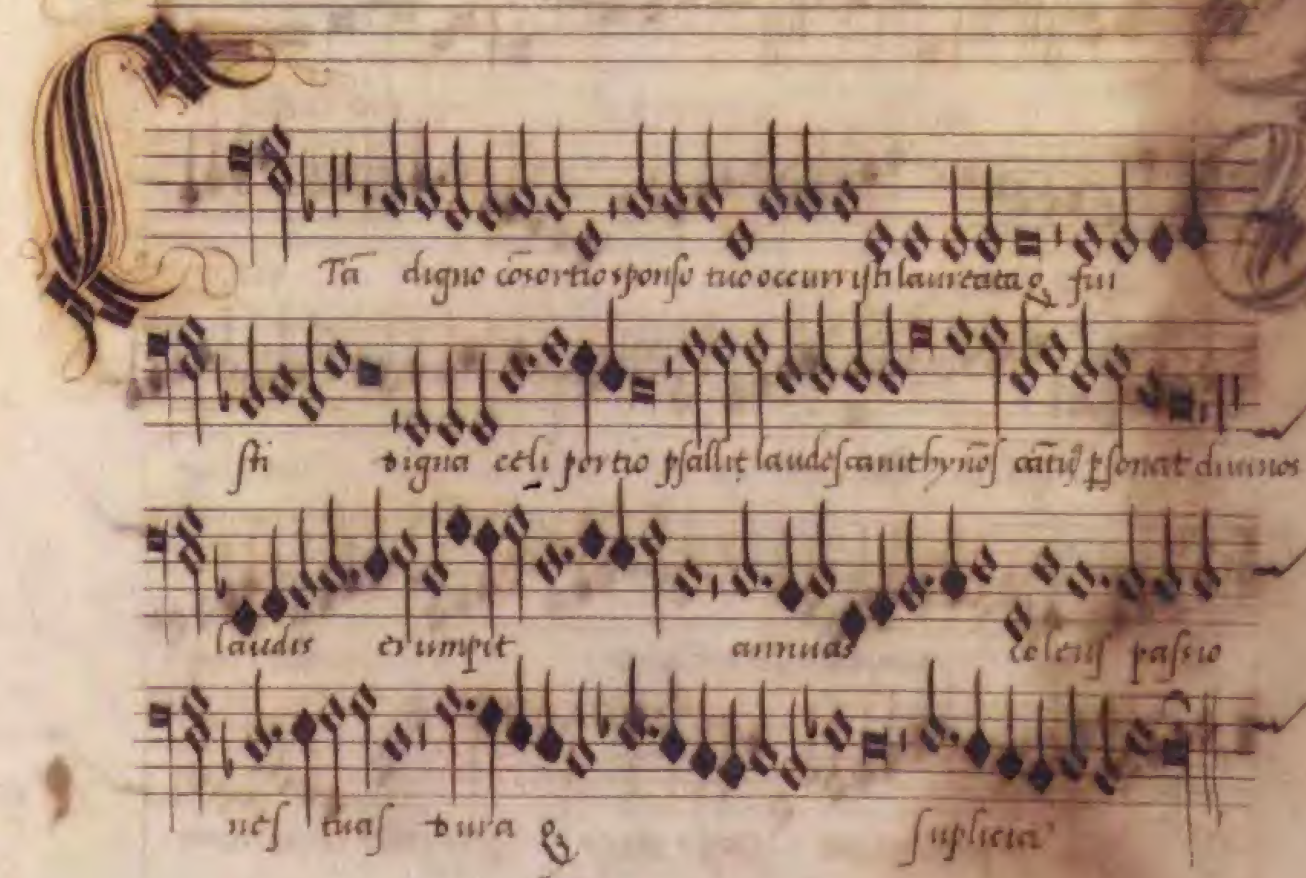 Tā digno cōsortio sponso tuo occurristi laureata q fui
sti digna celi portio psallit laudes canit hynos cātiq psonat divinos
laudis erumpit annuas colens passio
nes tuas dura q suplicia